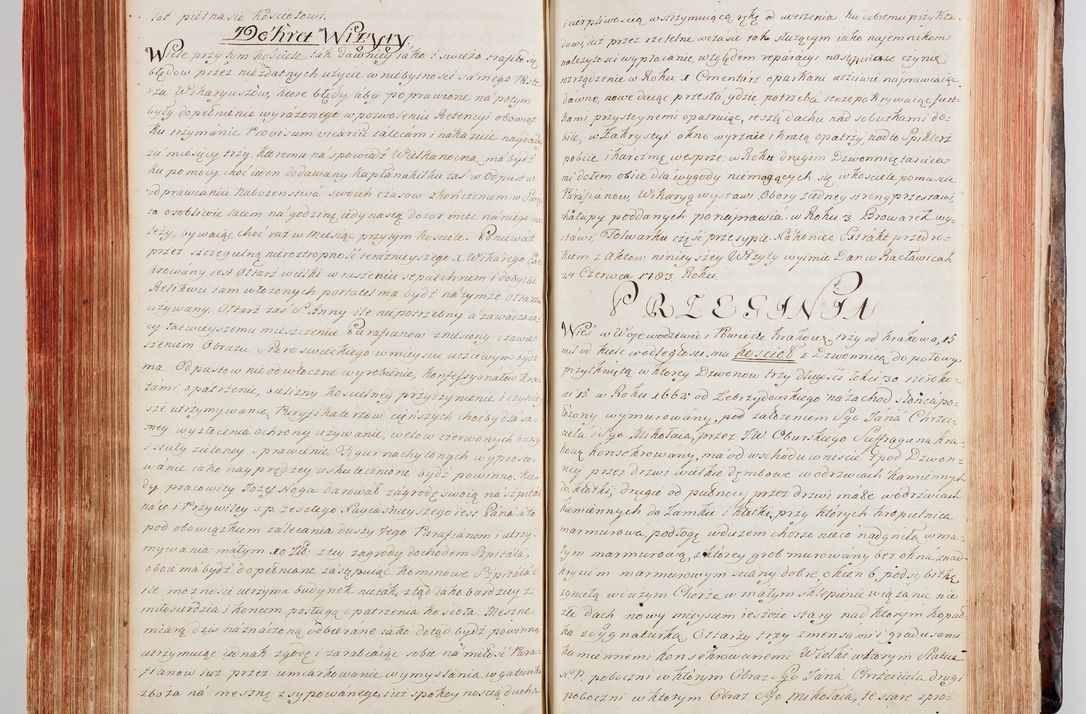 lat piętnaście Kościołowi.
Dekret Wizyty.
Wiele przy tym kościele tak dawniey iako i swieżo trafiło się
błędow przez niezdatnych użycie w niebytności samego
rza Wikaryuszow, ktore błędy aby poprawione na potym
były dopełnienie wyrażonego w pozwoleniu Retencyi obowiąz
ku trzymanie Provisum vicarii zalecam i nakazuię naydaley
za miesięcy trzy. ktoremu na spowiedź Wielkanocną ma bydź
ku pomocy choć ieden dodawany kapłan a kilku zaś w Odpust w
odprawianiu nabożeństwa swoich czasow skończeniem w
za osobliwie latem na godzinę iedynastą dozor mieć na niego na
leży, bywaiąc choć raz w Miesiąc przy tym kościele. Ponieważ
przez szczegulną nieroztropność teraźnieyszego X. Wikarego
 iest Ołtarz wielki w ruszeniu sepulchrum i dobyciu
Relikwii tam włożonych portatel ma bydź na tymże ołtarzu
używany. Ołtarz zaś S. Anny ile niepotrzebny a zawadzaią
cy łatwieyszemu mieszczeniu Parafianow zniesiony z zawie
szeniem Obrazu Staroświeckiego w mieyscu uczciwym bydź
ma. Odpustow nieodwłoczne wyrobienie, konfessyonałow kra
tami opatrzenie, bielizny kościelney przyczynienie i czyściey
sze utrzymywanie, Puryfikaterzow cięńszych choćby dla sa
mey wyzłocenia ochrony używanie, welow czerwonych
i stuły zieloney sprawienie Figur nachylonych wyprosto
wanie iako nayprędzey uskutecznione bydź powinno. Kie
dy pracowity Jozef Noga darował zagrodę swoią na Szpital
na co i Przywiley s.p. zeszłego Nayiaśnieyszego iest Pana a to
pod obowiązkiem zalecania duszy Jego Parafianom i utrzy
mywania małym 10 Zł. z tey zagrody dochodem Szpitala,
oboie ma bydź dopełniane zastępuiąc kominowe Szpitala i
ile możności utrzyma budynek nie tak z tąd iako bardziey z
miłosierdzia i końcem posługą opatrzenia kościoła. Meszne
miarą dziś naznaczoną odbierane iako dotąd bydź powinno
utrzymuiąc iednak zgodę i zarabiaiąc sobie na miłość Para
fianow iuż przez umiarkowanie wymyślania w gatunku
zboża na meszną zsypowanego, iuż spokoynością ducha
i cierpliwością wstrzymuiącą rękę od uderzenia ku dobremu przykła
dowi, iuż przez rzetelne w czasie tak służącym iako naiemnikom
należytości wypłacanie, względem reparacyi następuiące czynię
rozrządzenie w Roku 1 Cmentarz oparkani uczciwie naprawiaiąc
dawne, nowe daiąc przęsła, gdzie potrzeba i nie pokrywaiąc
kami przyściennemi opatruiąc, resztę dachu nad sobotkami do
biie, w Zakrystyi okno wyrznie i kratą opatrzy, nadto Spiklerz
pobiie i karczmę wesprze. w Roku drugim Dzwonnicę tarcica
mi dołem obiie dla wygody niemogących się w kościele pomieścić
Parafianow, Wikaryą wystawi Obory z iedney strony przestawi,
chałupy poddanych ponaprawia w Roku 3. Browarek wy
stawi, Folwarku część przesypie. Nakoniec Extrakt przed ro
kiem z Aktow ninieyszey Wizyty wyimie Dan w Racławicach
24 Czerwca 1783 Roku.
PRZEGINIA
Wieś w Woiewodztwie i Powiecie Krakows: trzy od Krakowa, 15
mil od Kielc w odległości, ma kościoł z Dzwonnicą do połowy
przytkniętą w ktorey Dzwonow trzy długości łokci 30 szeroko
ści 15. w Roku 1662 od Zebrzydowskiego na zachod słońca po
łożony wymurowany, pod założeniem Sgo Jana Chrzci
ciela i Sgo Mikołaia, przez J.W. Oborskiego Suffragana kra
kows: konsekrowany, ma od wschodu wniście 1 pod Dzwon
nicą przez drzwi wielkie dębowe w odrzwiach kamiennych
do kłotki, drugie od pułnocy przez drzwi małe w odrzwiach
kamiennych do Zamku i kłotki, przy ktorych kropielnica
marmurowa, podłogę w duzem chorze nieco nadgniłą w ma
łym marmurową, z ktorey grob murowany bez okna, z na
kryciem marmurowym ściany dobre, okien 6, podsybitkę
zgniełą w dużym Chorze w małym sklepienie wiązanie nie
złe dach nowy mieysem ieszcze stary nad ktorym kopuł
ka z sygnaturką, Ołtarzy trzy z mensami i gradusami
kamiennemi konsekrowanemi Wielki w ktorym Statua
N. P. poboczni w ktorym Obraz Sgo Jana Chrzciciela drugi
poboczni w ktorym Obraz Sgo Mikołaia, te stare spro-